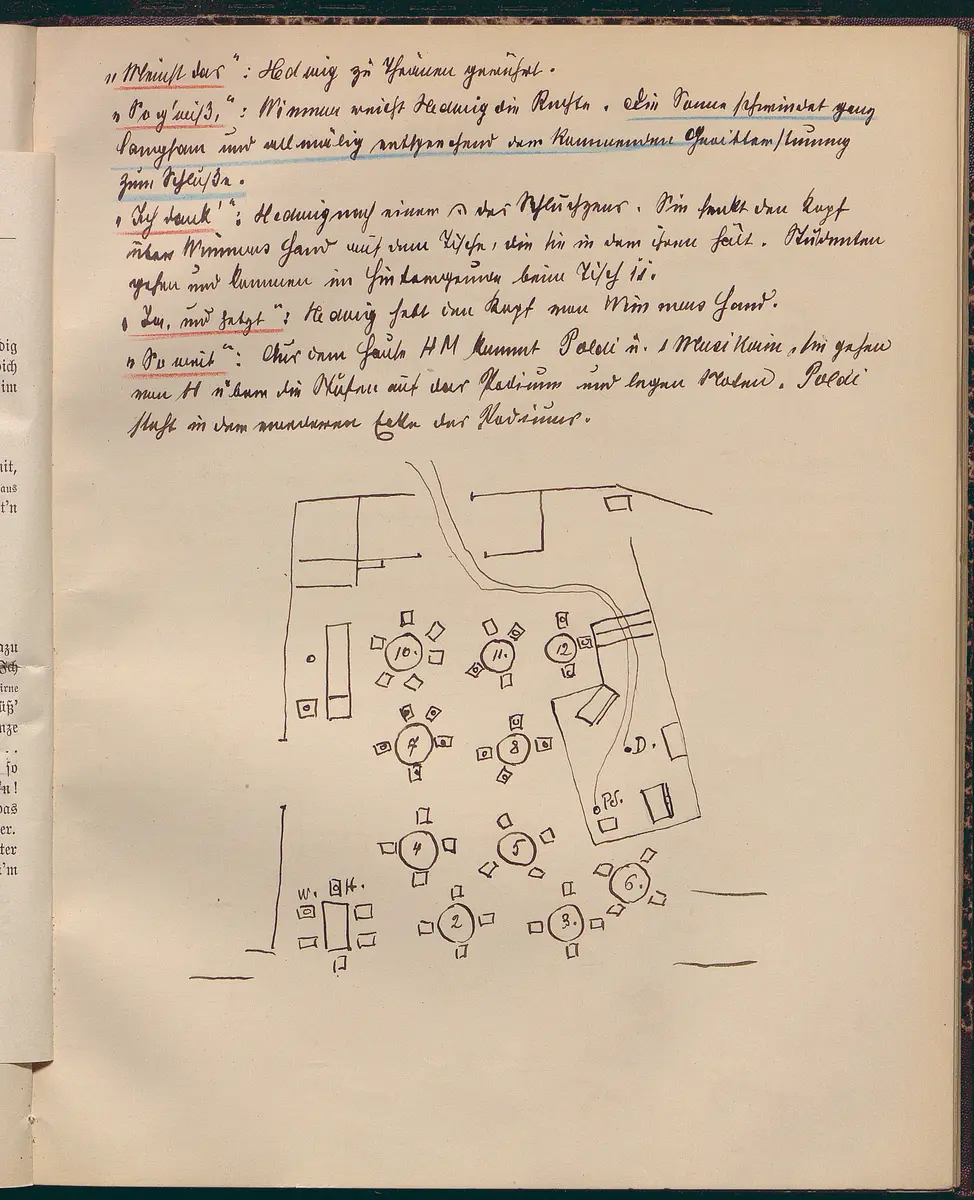 „Meinst das“: Hedwig zu Thränen gerührt.
„So g'wiß,“: Wimmer reicht Hedwig die Rechte. Die Sonne schwindet ganz
langsam und allmälig entsprechend dem kommenden Gewitterstimmung
zum Schluße.
„Ich dank'“: Hedwig nach einem des Schluchzens. Sie senkt den Kopf
über Wimmers Hand auf dem Tische, die sie in dem ihren hält. Studenten
gehen und kommen im Hintergrunde beim Tisch 11.
„Ja, und jetzt“: Hedwig hebt den Kopf von Wimmers Hand.
„So weit“: Aus dem Hause HM kommt Poldi u. 1 Musiker, sie gehen
von H über die Stufen auf das Podium und legen Noten. Poldi
steht in der vorderen Ecke des Podiums.
10.
11.
12
7
8
D.
Po.
4
5
6.
W. H.
2
3.
dig
sich
im
mit,
aus
t'n
azu
Ich
irne
üß'
nze
. .
so
'n!
das
er.
ter
'm